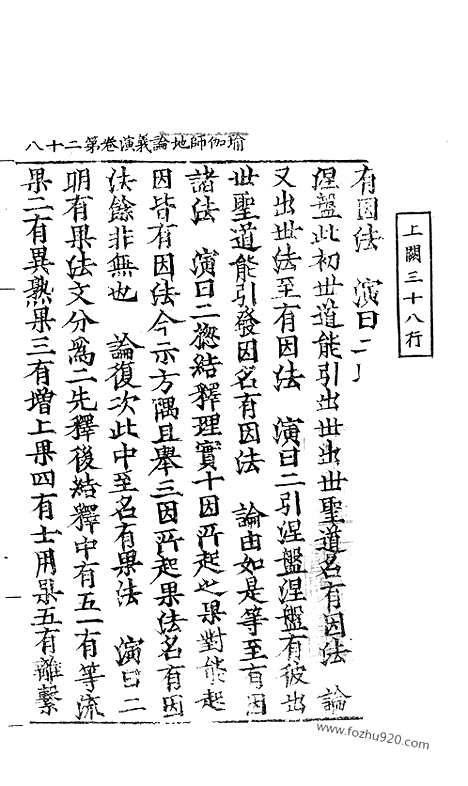 上闕三十八行
瑜伽師地論義演卷第二十八
有因法　演曰二
涅盤此初世道能引出世出世聖道名有因法　論
又出世法至有因法　演曰二引涅盤涅盤有彼出
世聖道能引發因名有因法　論由如是等至有因
諸法　演曰二揔結釋理實十因所起之果對能起
因皆有因法今示方隅且舉三因所起果法名有因
法餘非無也　論復次此中至名有果法　演曰二
明有果法文分為二先釋後結釋中有五一有等流
果二有異熟果三有增上果四有士用果五有離繫
www.fozhu920.com